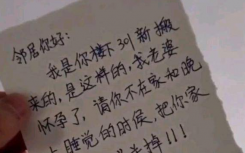 邻居你好:
我是你楼下301新搬
来的,是这样的,我老婆
怀孕了,请你不在家和晚
上睡觉的时候,把你家
关掉!!!